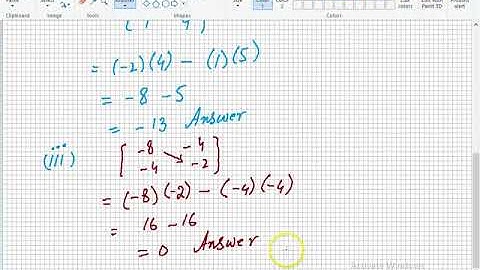 Clipboard
Image
Tools
Shapes
Colors
Edit with Paint 3D
= (-2)(4) - (1)(5)
= -8 -5
= -13 Answer
(iii) [ -8 -4
-4 -2 ]
= (-8)(-2) - (-4)(-4)
= 16 - 16
= 0 Answer
Activate Windows